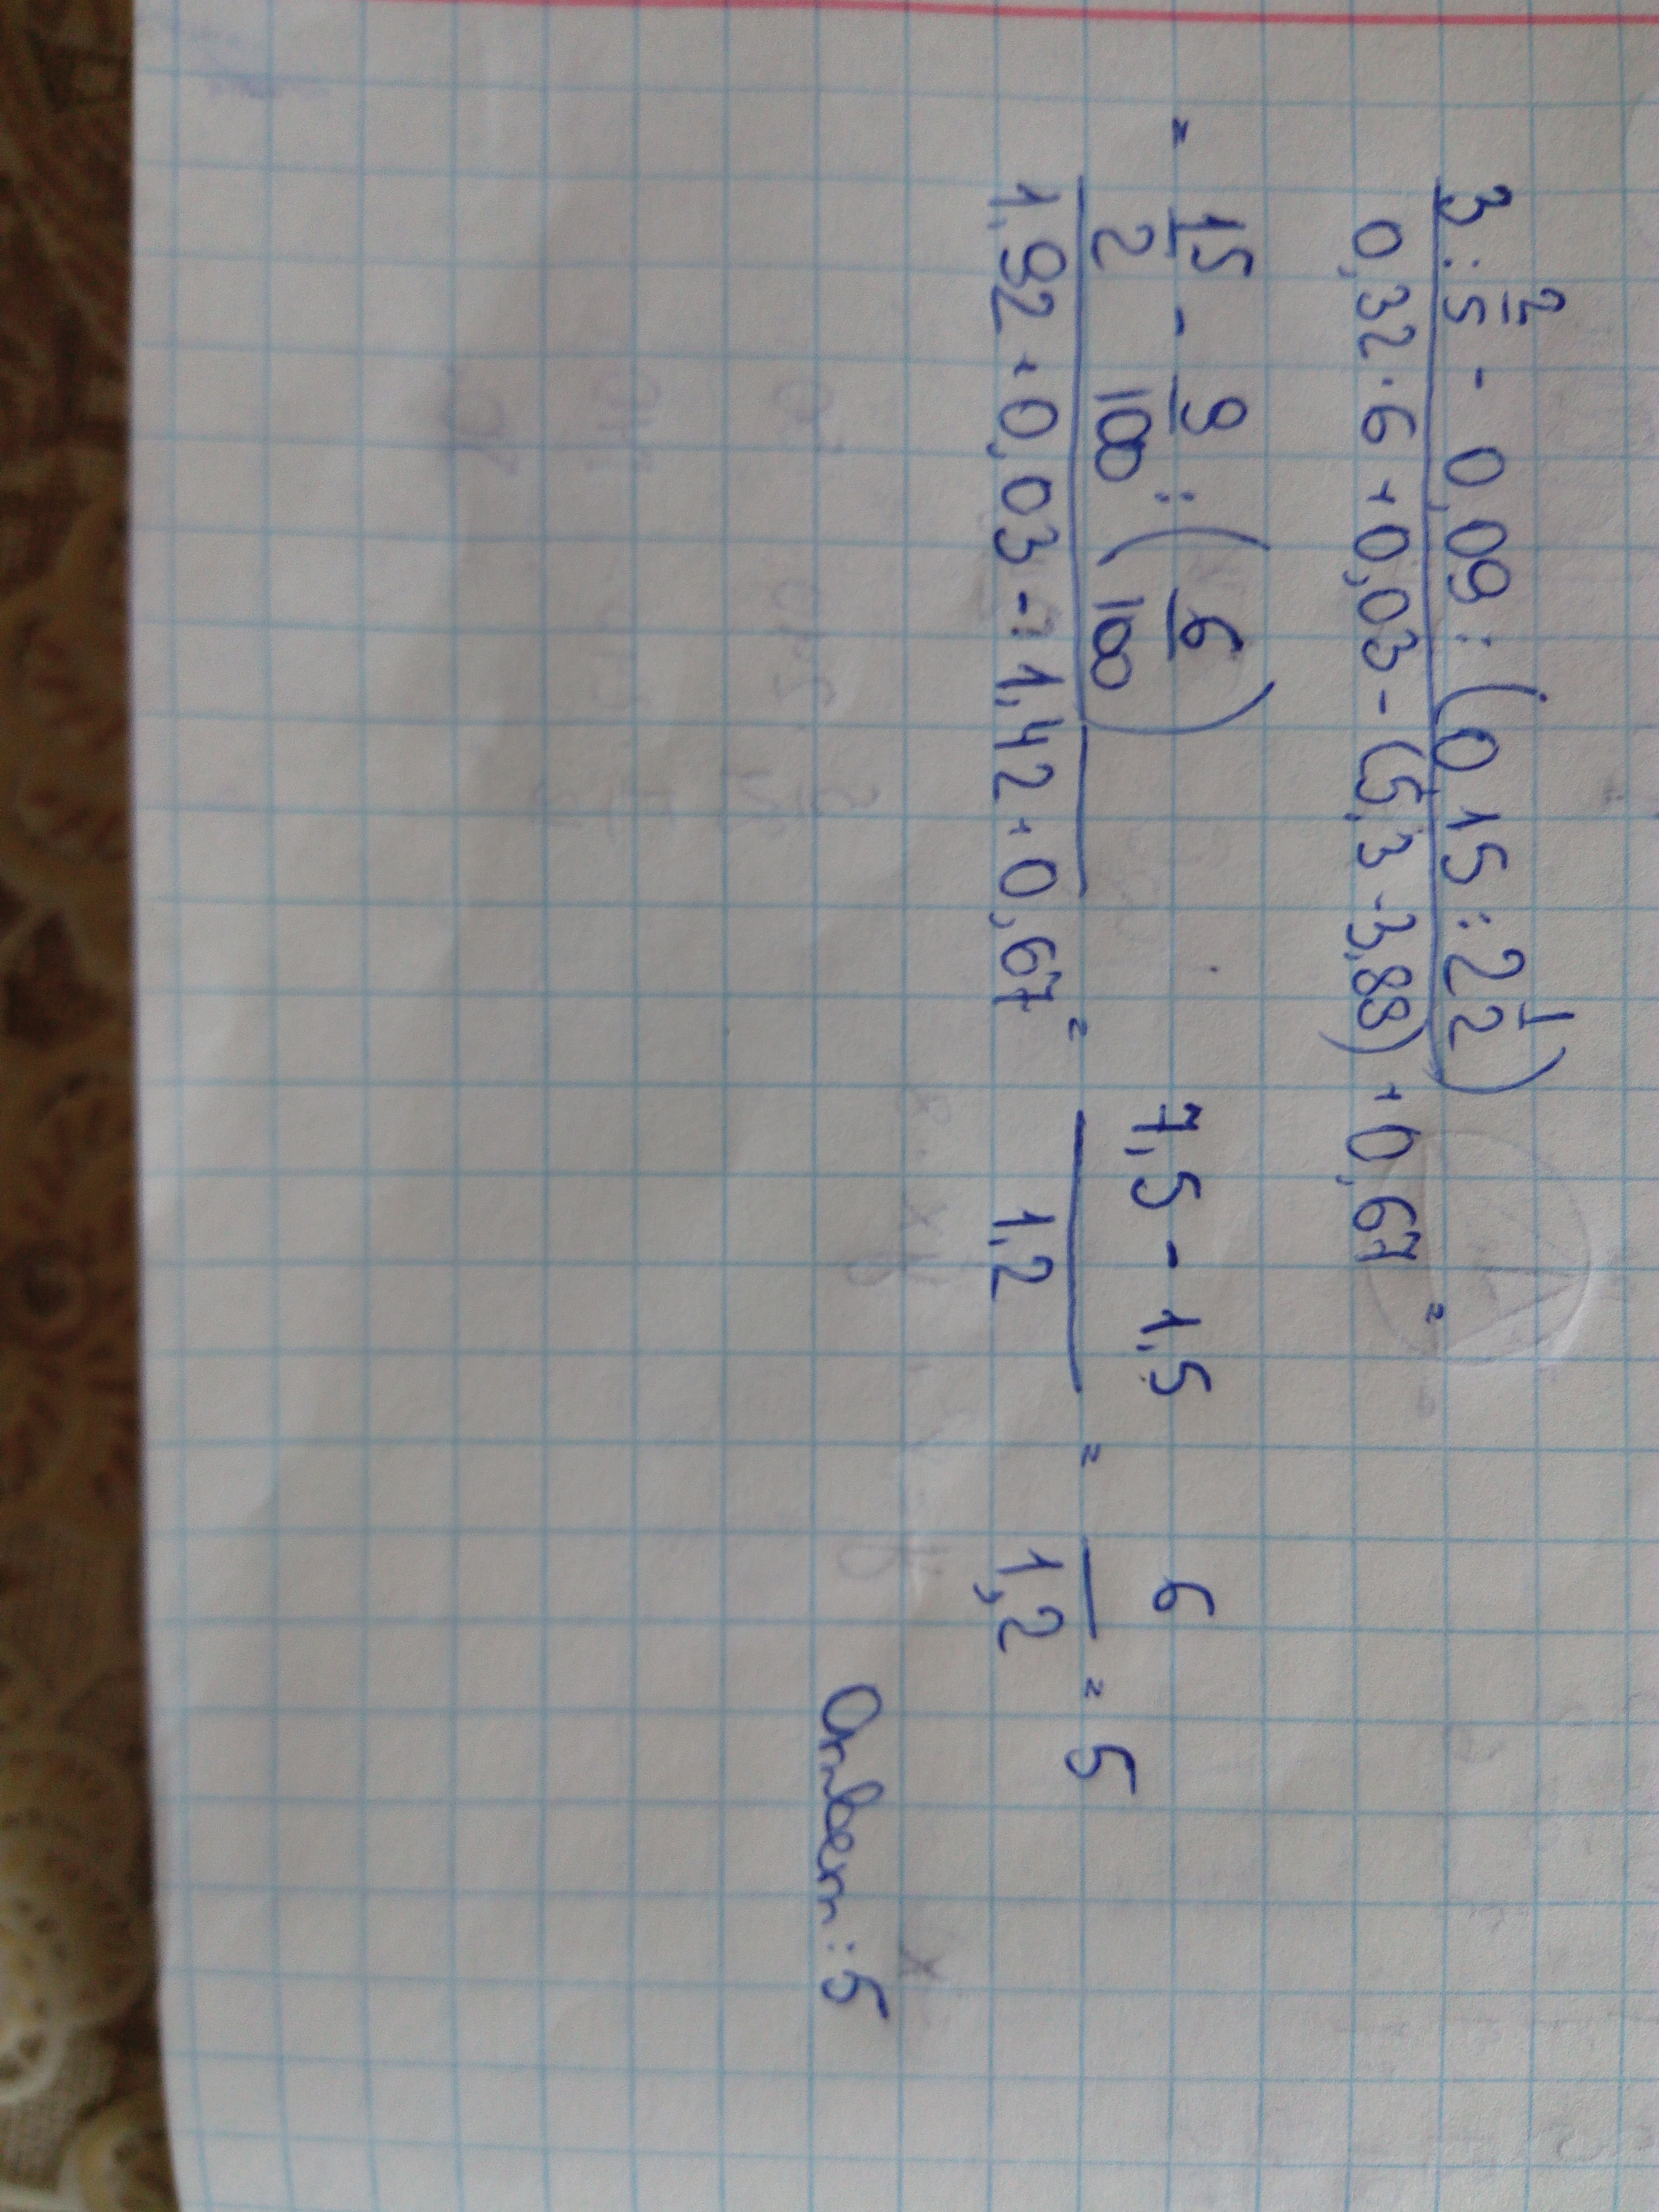 3 : 2/5 - 0,09 : (0 15 : 2 1/2)
0,32 · 6 + 0,03 - (5,3 - 3,88) + 0,67 =
= 15/2 - 9/100 : (6/100) 7,5 - 1,5 6
1,92 + 0,03 - 1,42 + 0,67 = 1,2 = 1,2 = 5
Ответ : 5